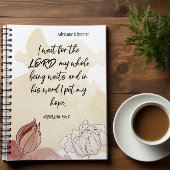 I wait for the
LORD my whole
being waits and in
his word I put my
hope.